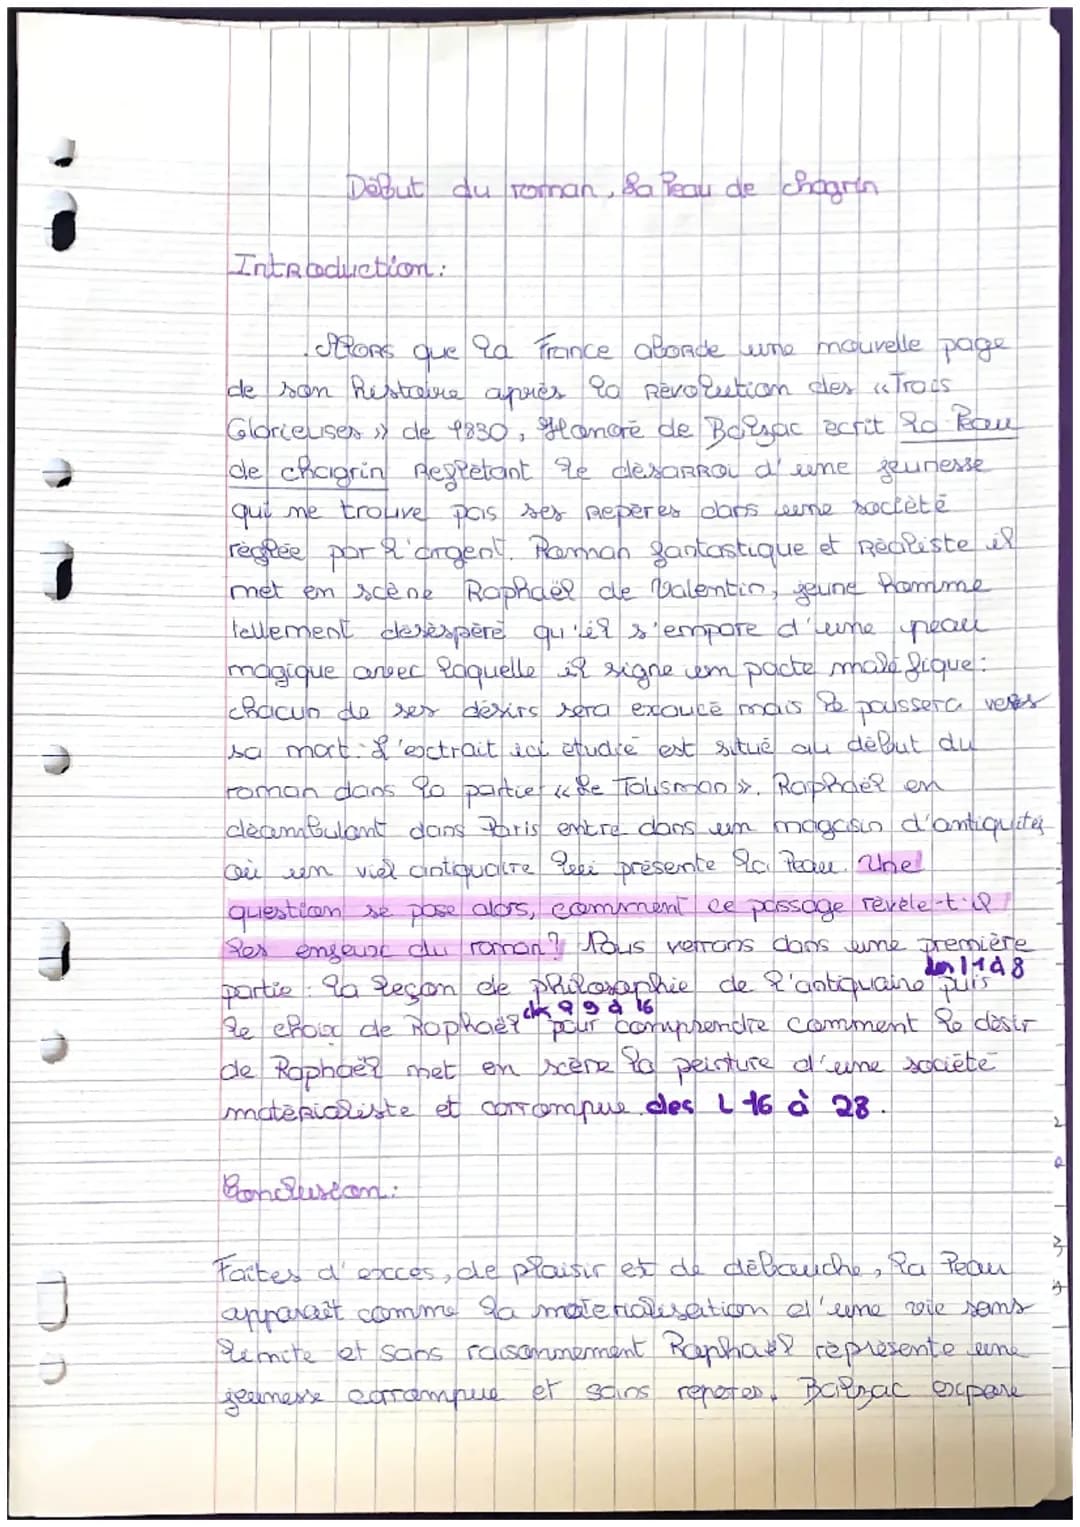 Début du roman, La Peau de chagrin
Introduction :
Alors que la France aborde une nouvelle page
de son histoire après la Révolution des « Trois
Glorieuses » de 1830, Honoré de Balzac écrit La Peau
de chagrin Reflétant le désarroi d'une jeunesse
qui ne trouve pas ses repères dans une société
réglée par l'argent. Roman fantastique et Réaliste il
met en scène Raphaël de Valentin, jeune homme
tellement désespéré qu'il s'empare d'une peau
magique avec laquelle il signe un pacte maléfique :
chacun de ses désirs sera exaucé mais le poussera vers
sa mort. L'extrait ici étudié est situé au début du
roman dans la partie « Le Talisman ». Raphaël en
déambulant dans Paris entre dans un magasin d'antiquités
où un viel antiquaire lui présente la Peau. Une
question se pose alors, comment ce passage révèle-t-il
les enjeux du roman ? Nous verrons dans une première
partie : la leçon de philosophie de l'antiquaire des l 1 à 8 puis
le choix de Raphaël des l 9 à 16 pour comprendre comment le désir
de Raphaël met en scène la peinture d'une société
matérialiste et corrompue des L 16 à 28.
Conclusion :
Faites d'excès, de plaisir et de débauche, la Peau
apparaît comme la matérialisation d'une vie sans
limite et sans raisonnement Raphaël représente une
jeunesse corrompue et sans repères. Balzac expose